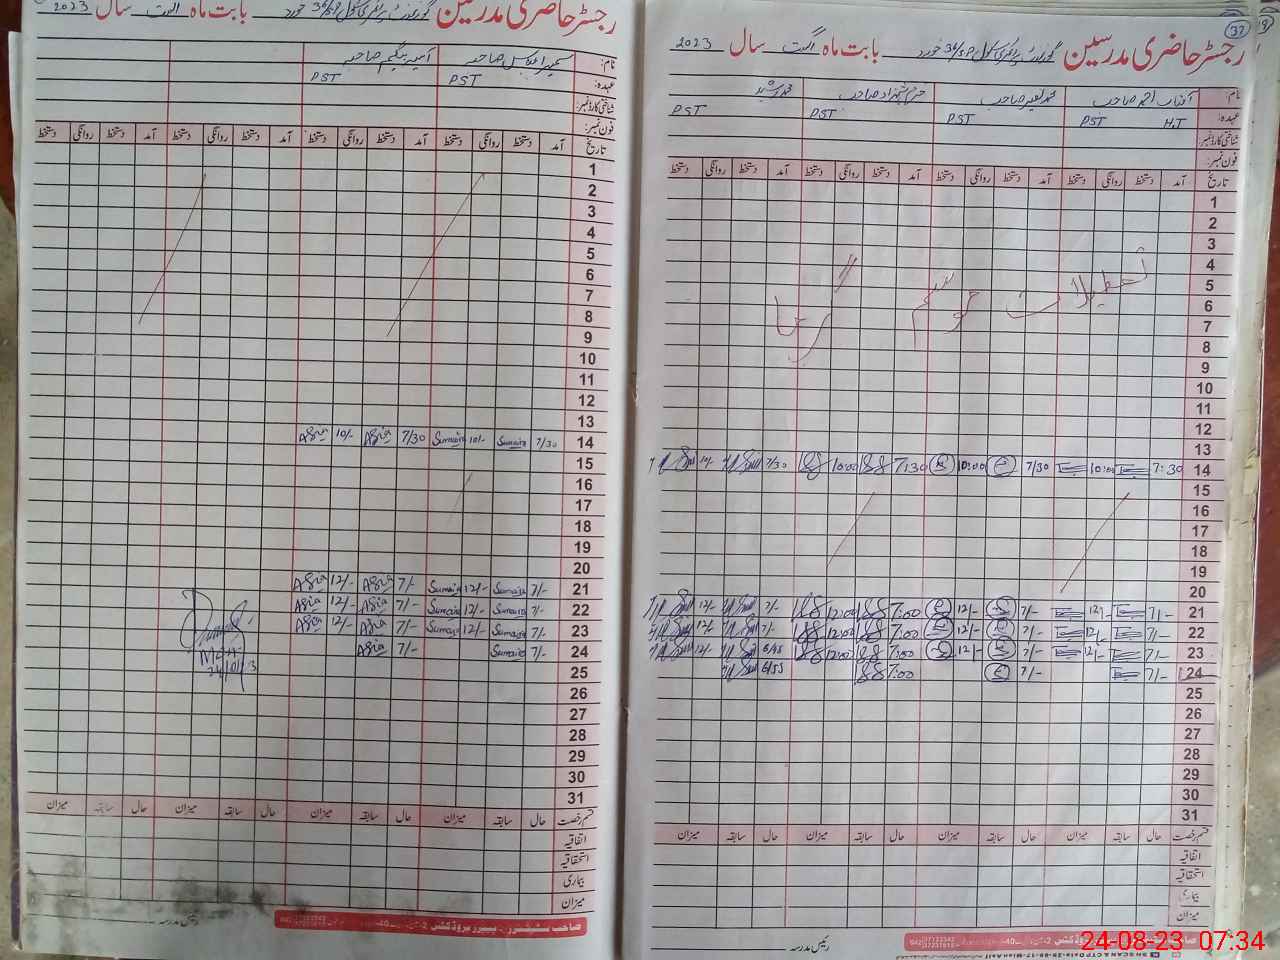 رجسٹر حاضری مدرسین گورنمنٹ پرائمری سکول 36/SP خورد بابت ماہ اگست سال 2023
32
نام: آفتاب احمد صاحب محمد نصیر صاحب خرم شہزاد صاحب محمد رشید
عہدہ: H.T PST PST PST PST
شناختی کارڈ نمبر:
فون نمبر:
تاریخ آمد دستخط روانگی دستخط آمد دستخط روانگی دستخط آمد دستخط روانگی دستخط آمد دستخط روانگی دستخط
1
2
3
4
5
6
7
8
9
10
11
12
13
تعطیلات موسم گرما
14 7:30 10:00 7/30 10:00 7:30 10:00 7/30 10/-
15
16
17
18
19
20
21 7/- 12/- 7/- 12/- 7:00 12:00 7/- 12/-
22 7/- 12/- 7/- 12/- 7:00 12:00 7/- 12/-
23 7/- 12/- 7/- 12/- 7:00 12:00 6/45 12/-
24 7/- 7/- 7:00 6/55
25
26
27
28
29
30
31
قسم رخصت حال سابقہ میزان حال سابقہ میزان حال سابقہ میزان حال سابقہ میزان
اتفاقیہ
استحقاقیہ
بیماری
میزان
رئیس مدرسہ
رجسٹر حاضری مدرسین گورنمنٹ پرائمری سکول 36/SP خورد بابت ماہ اگست سال 2023
نام: صاحبہ آسیہ بیگم صاحبہ
عہدہ: PST PST
شناختی کارڈ نمبر:
فون نمبر:
تاریخ آمد دستخط روانگی دستخط آمد دستخط روانگی دستخط آمد دستخط روانگی دستخط آمد دستخط روانگی دستخط
1
2
3
4
5
6
7
8
9
10
11
12
13
14 7/30 Sumaira 10/- Sumaira 7/30 Asia 10/- Asia
15
16
17
18
19
20
21 7/- Sumaira 12/- Sumaira 7/- Asia 12/- Asia
22 7/- Sumaira 12/- Sumaira 7/- Asia 12/- Asia
23 7/- Sumaira 12/- Sumaira 7/- Asia 12/- Asia
24 7/- Sumaira 7/- Asia
25
26
27
28
29
30
31
قسم رخصت حال سابقہ میزان حال سابقہ میزان حال سابقہ میزان حال سابقہ میزان
اتفاقیہ
استحقاقیہ
بیماری
میزان
رئیس مدرسہ
24-08-23 07:34